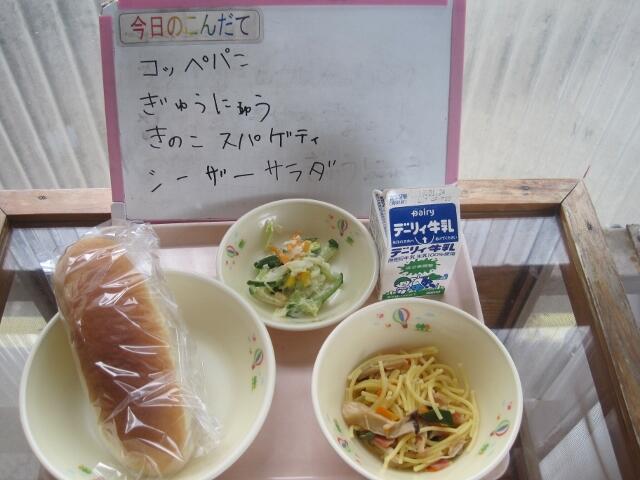 今日のこんだて
コッペパン
ぎゅうにゅう
きのこ スパゲティ
シーザーサラダ
Dairy
デーリィ牛乳
デーリィ牛乳